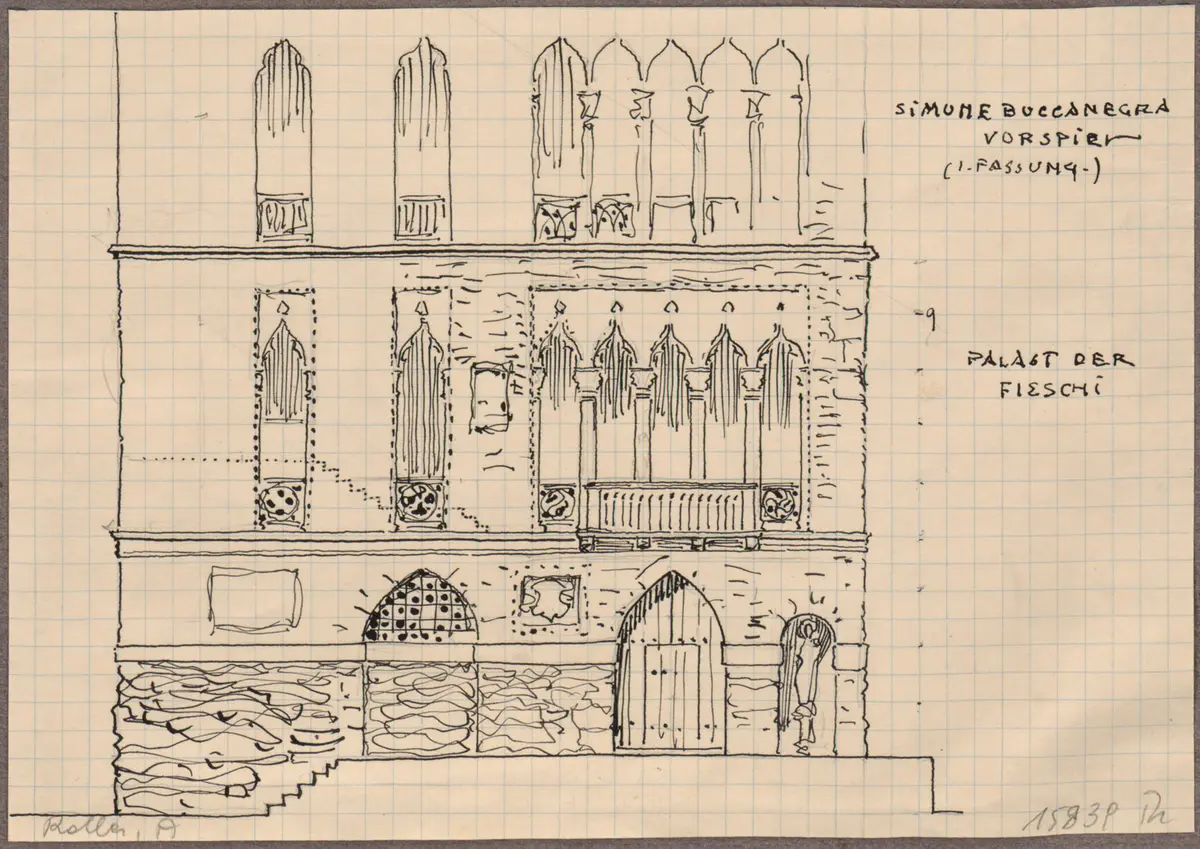 SIMONE BOCCANEGRA
VORSPIEL
(I. FASSUNG.)
9
PALAST DER
FIESCHI
Roller, A
15839 Th